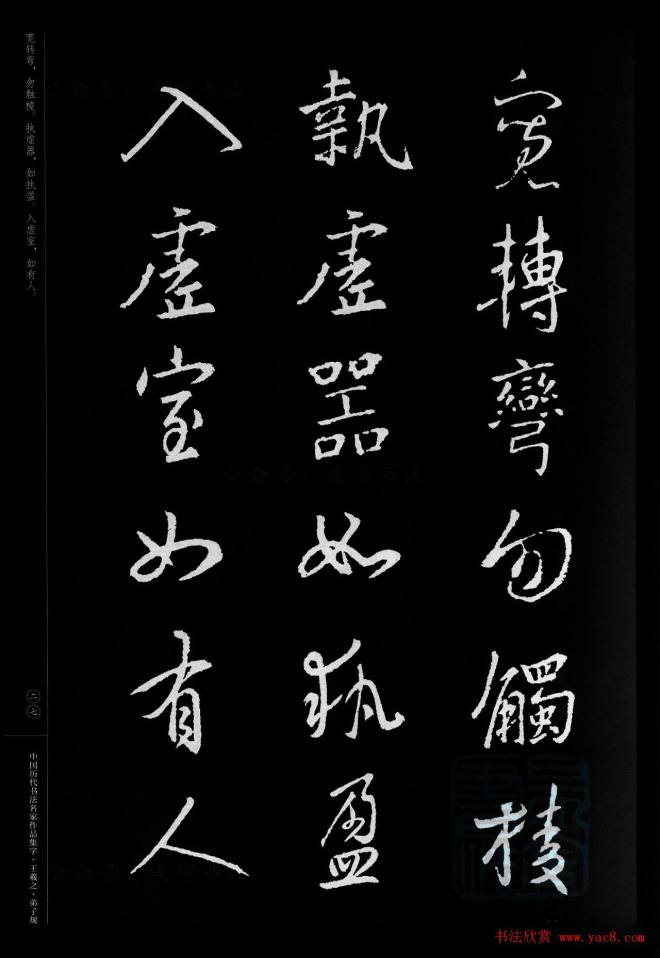 寬轉彎勿觸棱
執虛器如執盈
入虛室如有人
宽转弯，勿触棱。执虚器，如执盈。入虚室，如有人。
二七
中国历代书法名家作品集字·王羲之·弟子规
书法欣赏 www.yac8.com